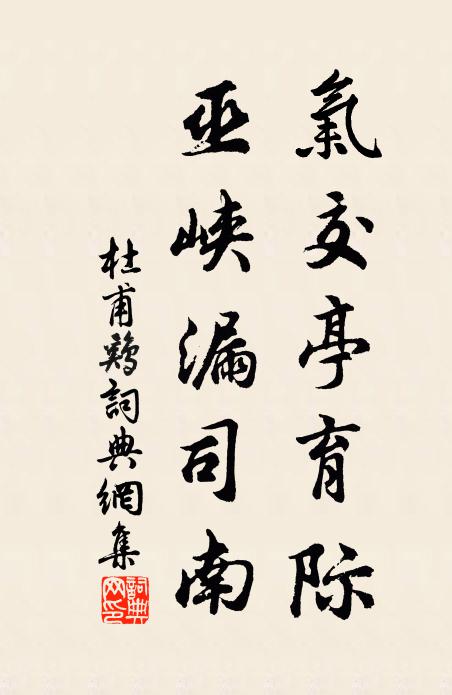 氣交亭育际
巫峡漏司南
杜甫鷄詞典網集
詞典网印